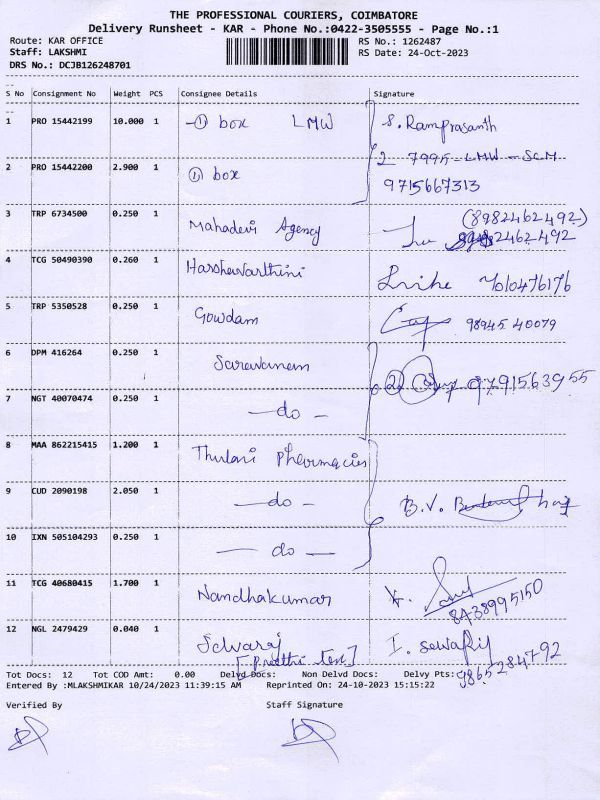 THE PROFESSIONAL COURIERS, COIMBATORE
Delivery Runsheet - KAR - Phone No.:0422-3505555 - Page No.:1
Route: KAR OFFICE RS No.: 1262487
Staff: LAKSHMI RS Date: 24-Oct-2023
DRS No.: DCJB126248701
S No Consignment No Weight PCS Consignee Details Signature
1 PRO 15442199 10.000 1 -① box LMW S. Ramprasanth
2 7995-LMW-SCM
2 PRO 15442200 2.900 1 ① box 9715667313
3 TRP 6734500 0.250 1 Mahadevi Agency (8982462492)
2462492
4 TCG 50490390 0.260 1 Harshavarthini 7010476176
5 TRP 5350528 0.250 1 Gowdam 98945 40079
6 DPM 416264 0.250 1 Saravanam
② 9791563955
7 NGT 40070474 0.250 1 -do-
8 MAA 862215415 1.200 1 Thulasi Pharmacies
9 CUD 2090198 2.050 1 -do- B.V.
10 IXN 505104293 0.250 1 -do-
11 TCG 40680415 1.700 1 Nandhakumar
8438995150
12 NGL 2479429 0.040 1 Selvaraj I.
[Preethi Tex] 9865284792
Tot Docs: 12 Tot COD Amt: 0.00 Delvd Docs: Non Delvd Docs: Delvy Pts:
Entered By :MLAKSHMIKAR 10/24/2023 11:39:15 AM Reprinted On: 24-10-2023 15:15:22
Verified By Staff Signature